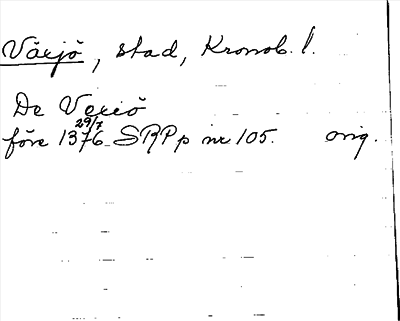 Växjö, stad, Kronob. l.
De Vexiö
före 29/7 1376 SRPp nr 105. orig.